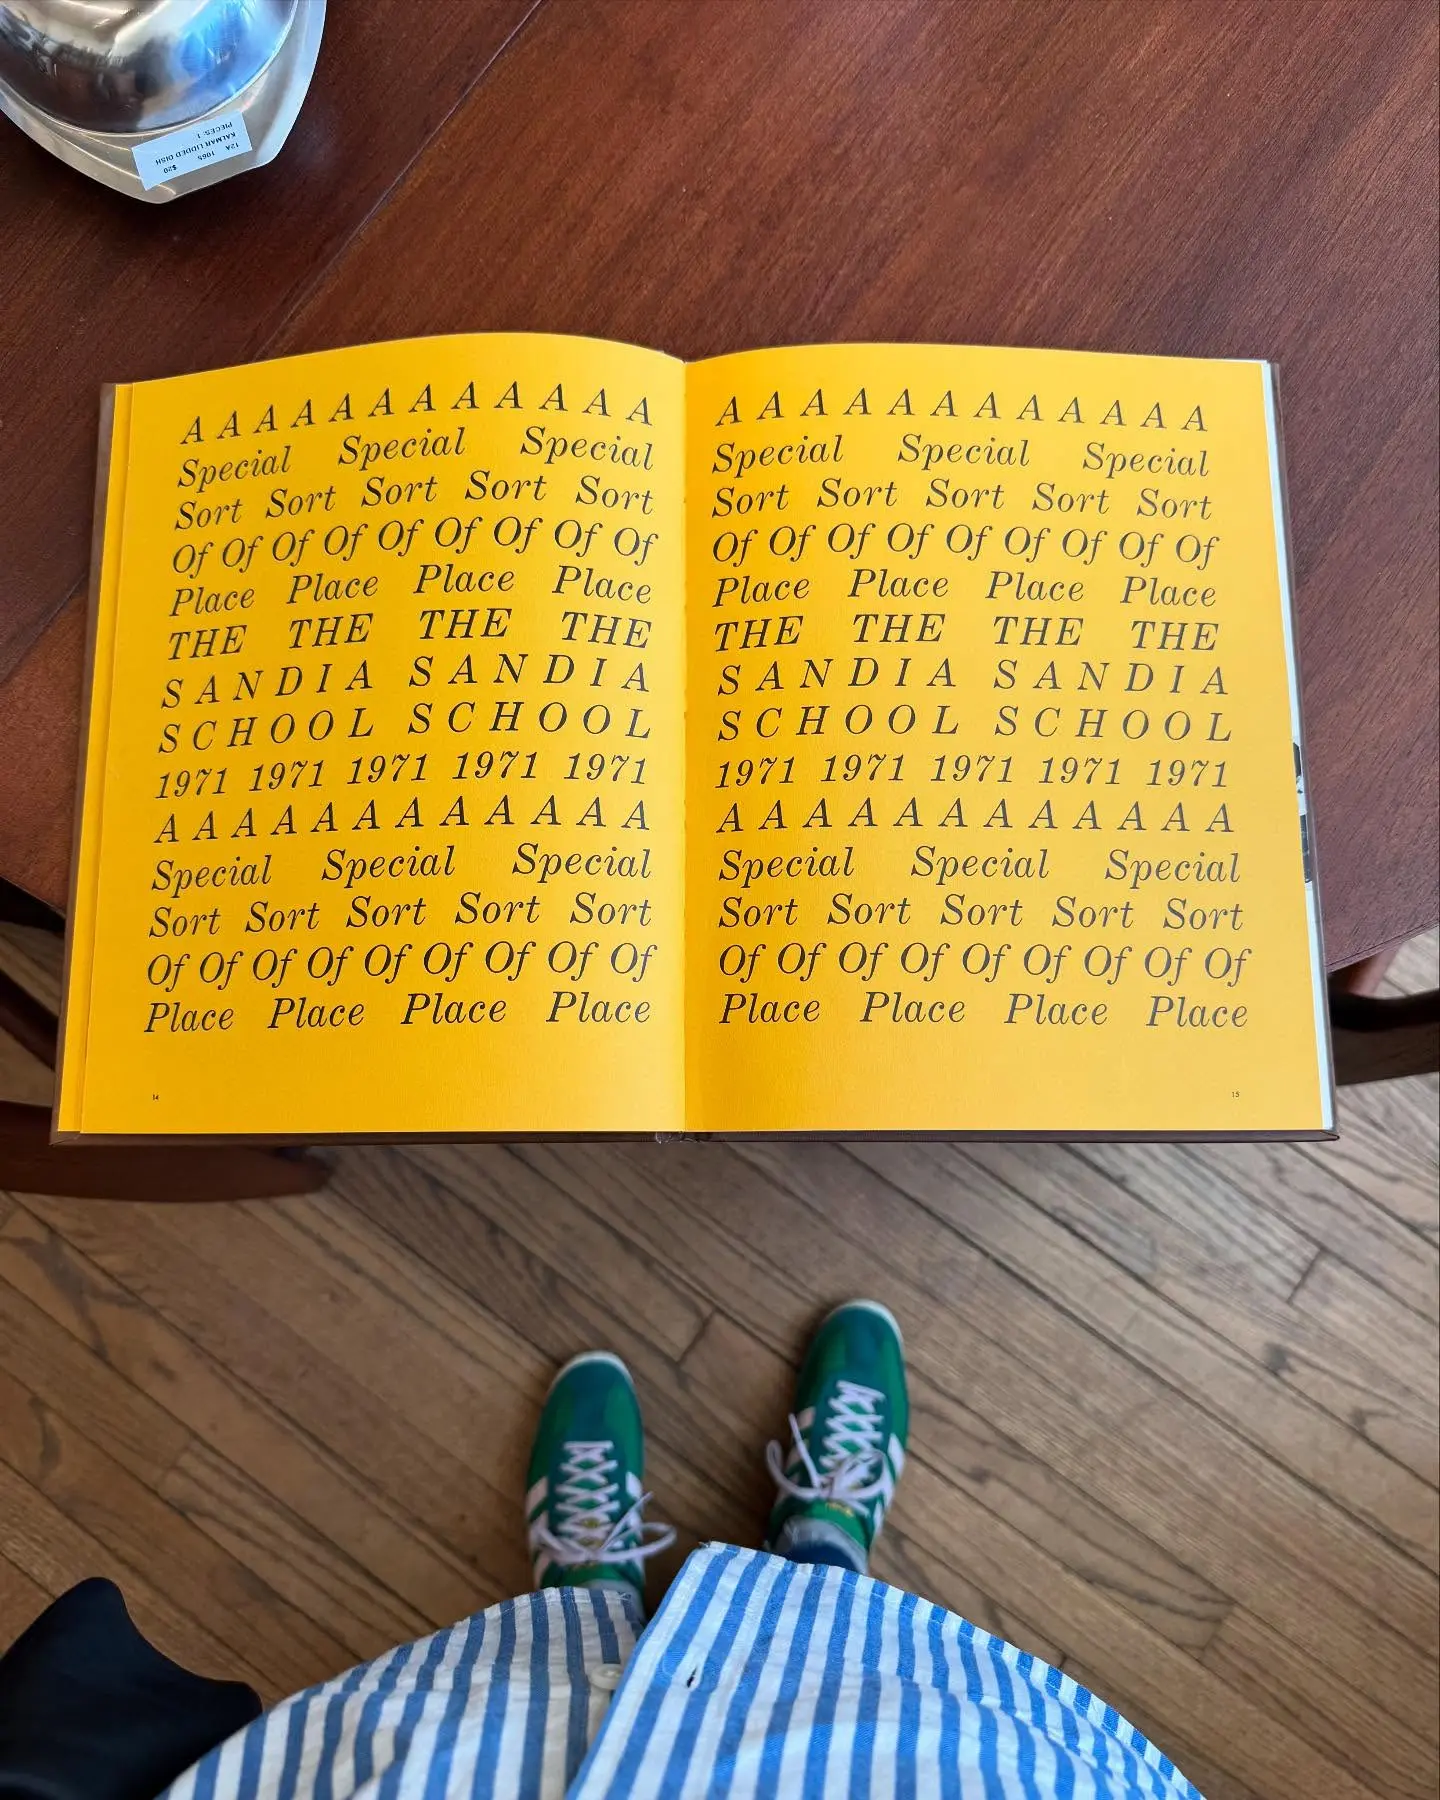 12A 1065 $20
KALMAR LIDDED DISH
PIECES: 1
A A A A A A A A A A A A
Special Special Special
Sort Sort Sort Sort Sort
Of Of Of Of Of Of Of Of Of
Place Place Place Place
THE THE THE THE
SANDIA SANDIA
SCHOOL SCHOOL
1971 1971 1971 1971 1971
A A A A A A A A A A A A
Special Special Special
Sort Sort Sort Sort Sort
Of Of Of Of Of Of Of Of Of
Place Place Place Place
14
A A A A A A A A A A A A
Special Special Special
Sort Sort Sort Sort Sort
Of Of Of Of Of Of Of Of Of
Place Place Place Place
THE THE THE THE
SANDIA SANDIA
SCHOOL SCHOOL
1971 1971 1971 1971 1971
A A A A A A A A A A A A
Special Special Special
Sort Sort Sort Sort Sort
Of Of Of Of Of Of Of Of Of
Place Place Place Place
15